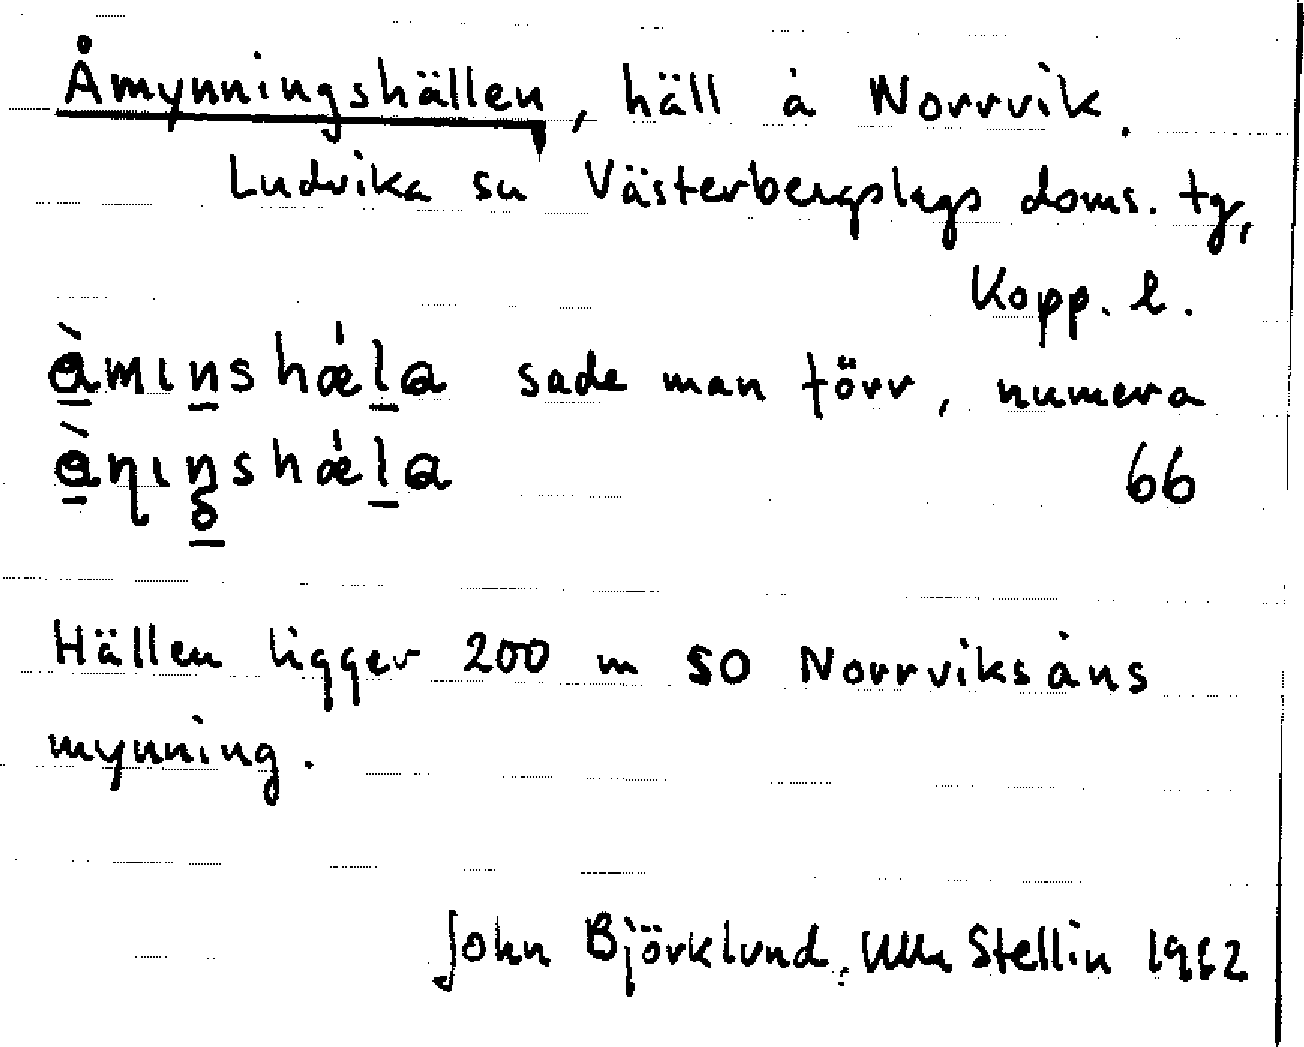 Åmynningshällen, häll å Norrvik.
Ludvika sn Västerbergslags doms. tg,
Kopp. l.
sade man förr, numera
66
Hällen ligger 200 m SO Norrviksåns
mynning.
John Björklund, Ulla Stellin 1962